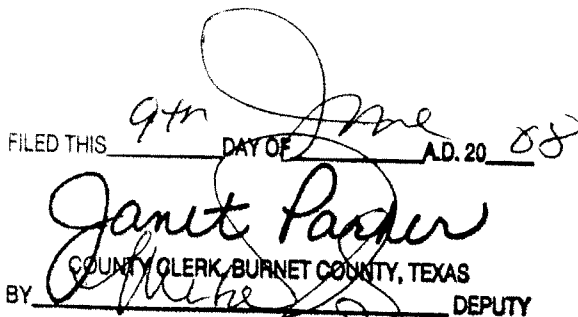 FILED THIS 9th DAY OF June A.D. 20 08
Janet Parker
COUNTY CLERK, BURNET COUNTY, TEXAS
BY DEPUTY